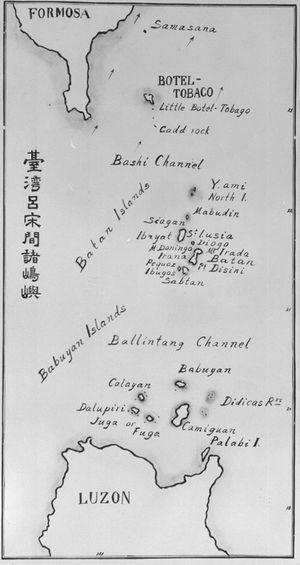 FORMOSA
Samasana
BOTEL-
TOBAGO
Little Botel-Tobago
Gadd rock
Bashi Channel
臺湾呂宋間諸嶋嶼
Batan Islands
Y'ami
North I.
Mabudin
Siagan
Ibayat
St Lusia
Diogo
M. Domingo
Mt Irada
Irana
Batan
Pt Disini
Ibugos
Sabtan
Babuyan Islands
Ballintang Channel
Babuyan
Calayan
Didicas Rks
Dalupiri
Juga or
Fuga
Camiguan
Palabi I.
LUZON